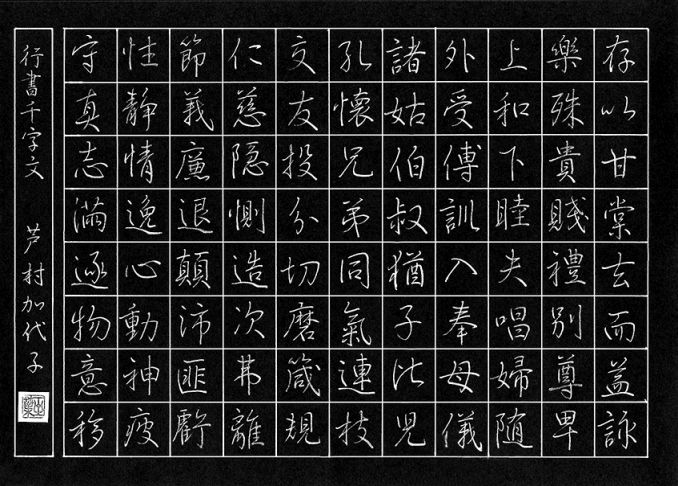 存以甘棠去而益詠
樂殊貴賤禮別尊卑
上和下睦夫唱婦随
外受傅訓入奉母儀
諸姑伯叔猶子比児
孔懐兄弟同氣連枝
交友投分切磨箴規
仁慈隠惻造次弗離
節義廉退顛沛匪虧
性静情逸心動神疲
守真志満逐物意移
行書千字文 芦村加代子